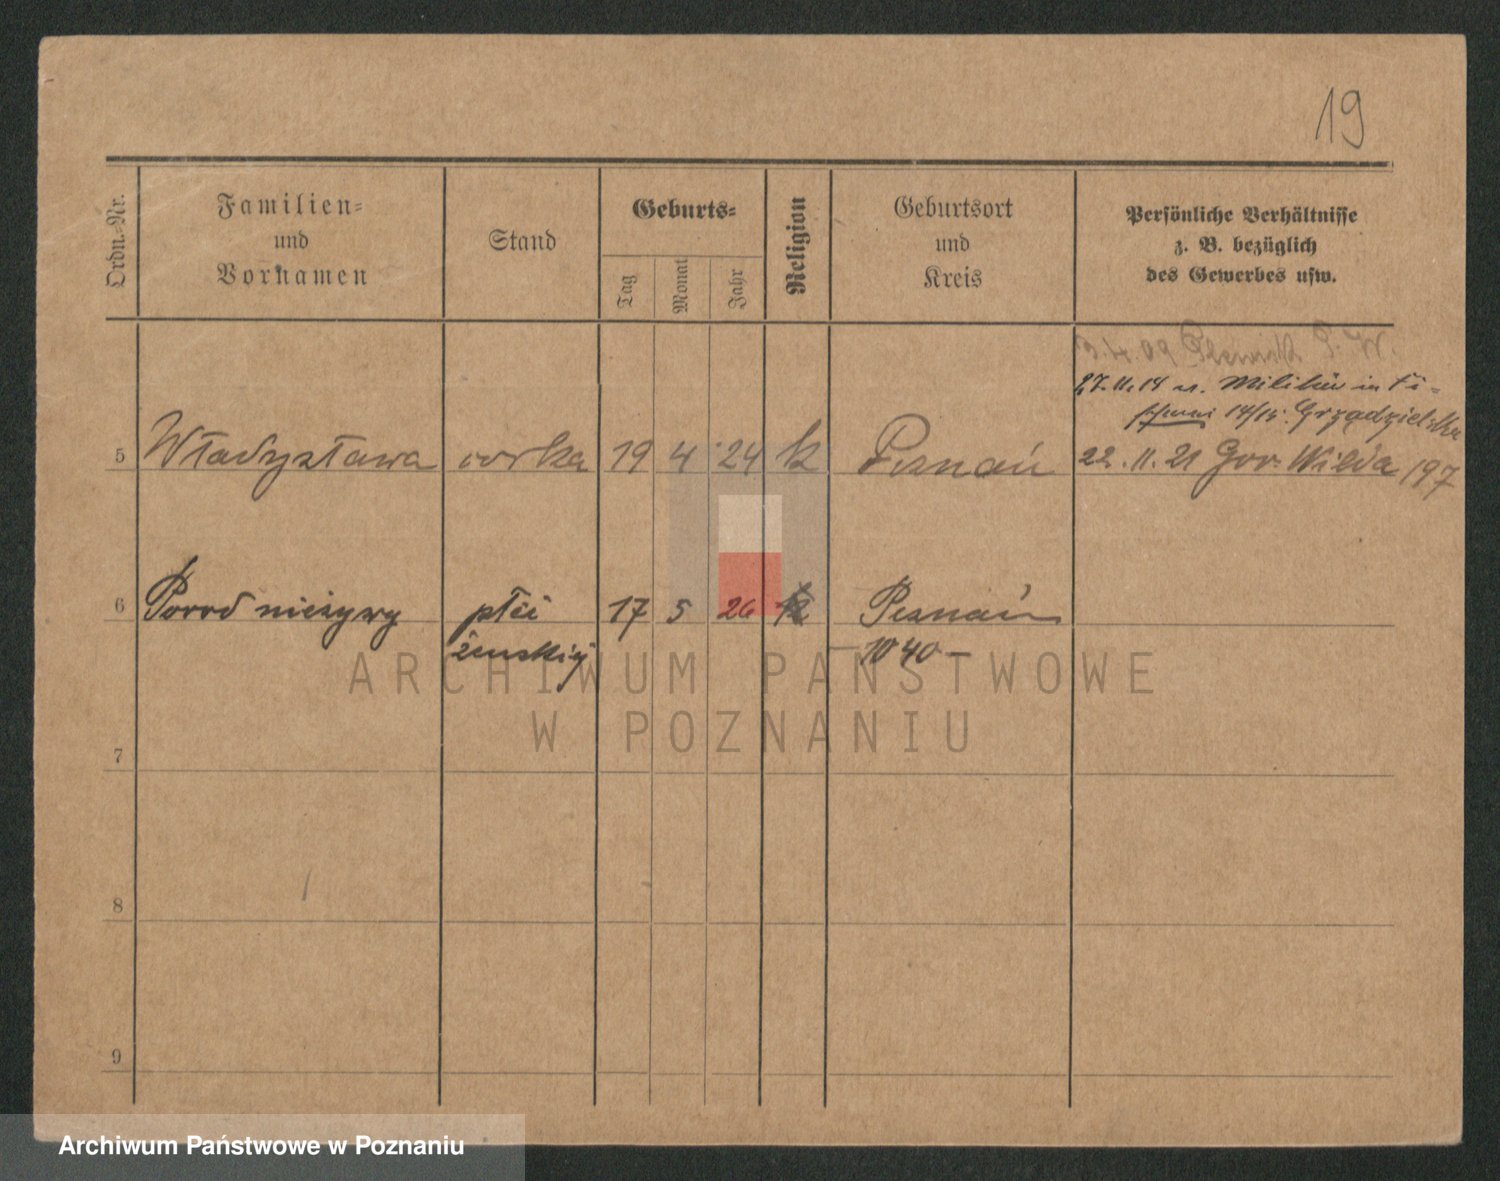 19
Ordn.-Nr.
Familien-
und
Vornamen
Stand
Geburts-
Tag
Monat
Jahr
Religion
Geburtsort
und
Kreis
Persönliche Verhältnisse
z. B. bezüglich
des Gewerbes usw.
3.4.09
27.11.14 Militär in
14/15.
5 Władysława córka 19 4 24 k Poznań 22.11.21 Gór. Wilda 197
6 Poród nieżywy płci 17 5 26 k Poznań
żeńskiej 1040
7
8
9
ARCHIWUM PAŃSTWOWE
W POZNANIU
Archiwum Państwowe w Poznaniu